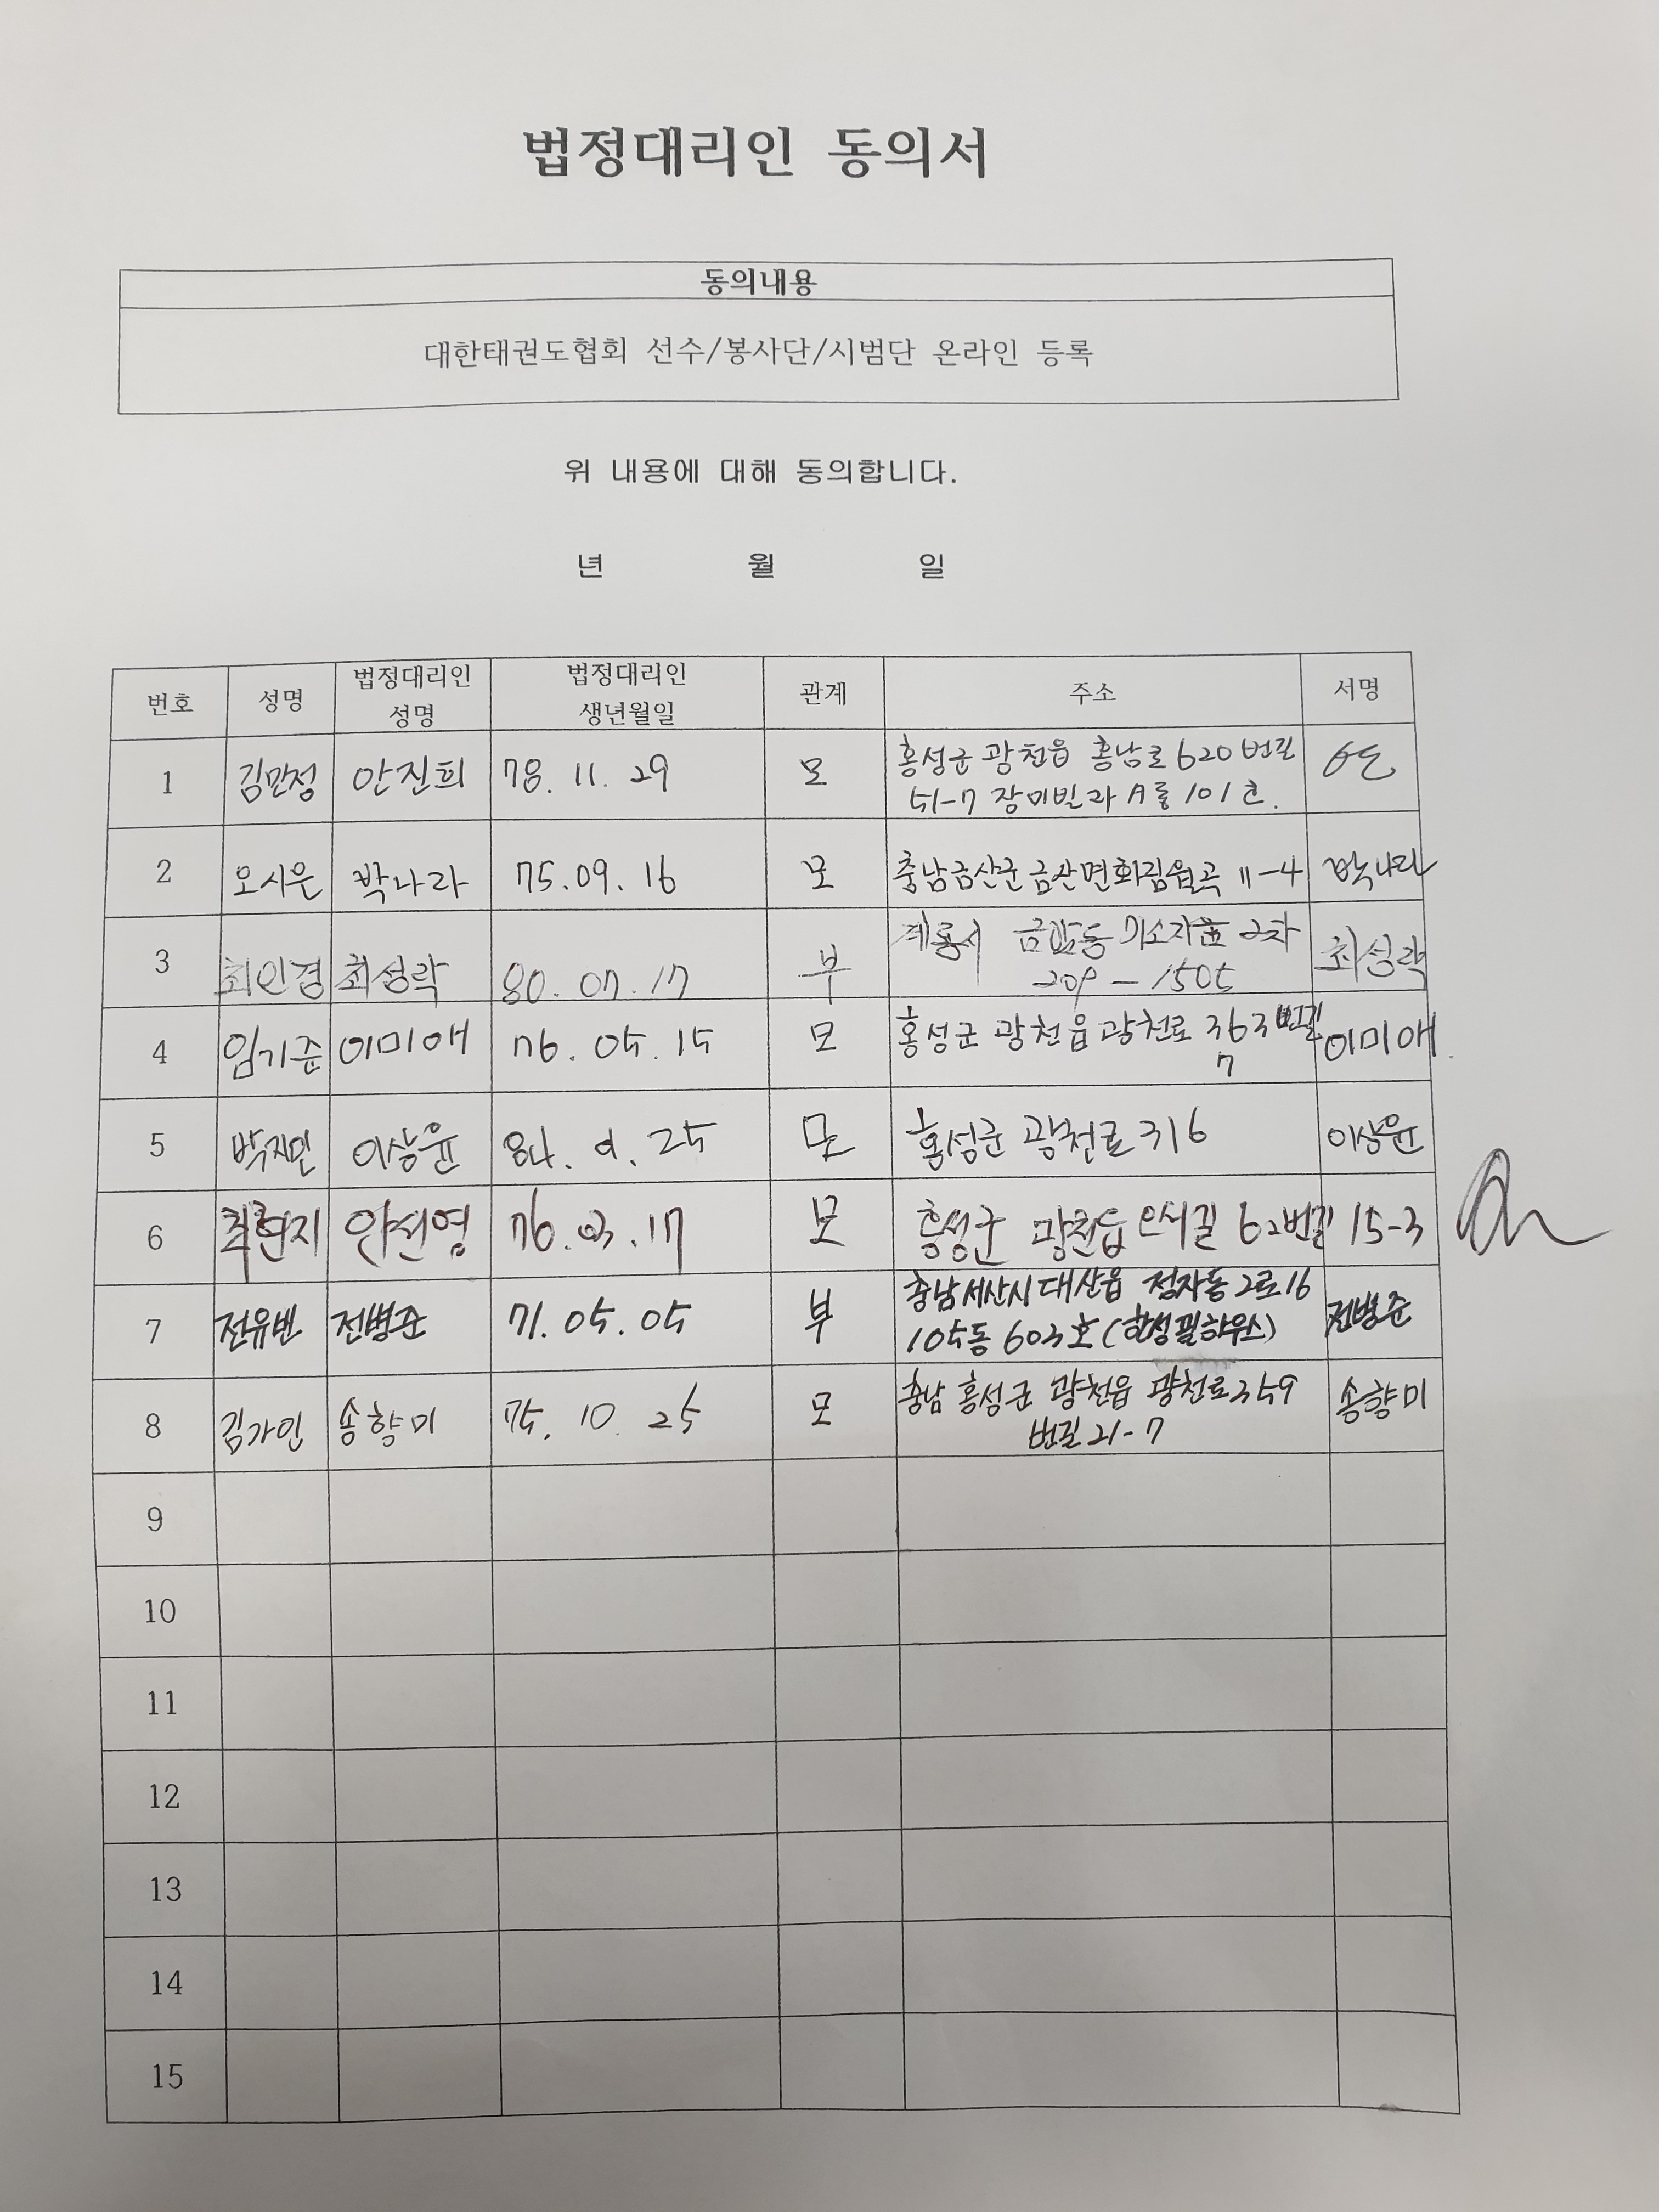 법정대리인 동의서
동의내용
대한태권도협회 선수/봉사단/시범단 온라인 등록
위 내용에 대해 동의합니다.
년 월 일
번호 성명 법정대리인 성명 법정대리인 생년월일 관계 주소 서명
1 김민정 안진희 78. 11. 29 모 홍성군 광천읍 홍남로 620번길
51-7 장미빌라 A동 101호.
2 오시은 박나라 75.09.16 모 충남금산군 금산면화림율곡 11-4 박나라
3 최인경 최성락 80. 07. 17 부 계룡시 금암동 2차 최성락
209-1505
4 임기준 이미애 76. 05. 15 모 홍성군 광천읍 광천로 363번길 이미애
7
5 박지민 이상윤 84. 9. 25 모 홍성군 광천로 316 이상윤
6 안선영 76.03.17 모 홍성군 광천읍 62번길 15-3
7 전유빈 전병준 71. 05. 05 부 충남서산시 대산읍 정자동2로16 전병준
105동 603호 (한성필하우스)
8 김가인 송향미 75. 10. 25 모 충남 홍성군 광천읍 광천로359 송향미
번길 21-7
9
10
11
12
13
14
15